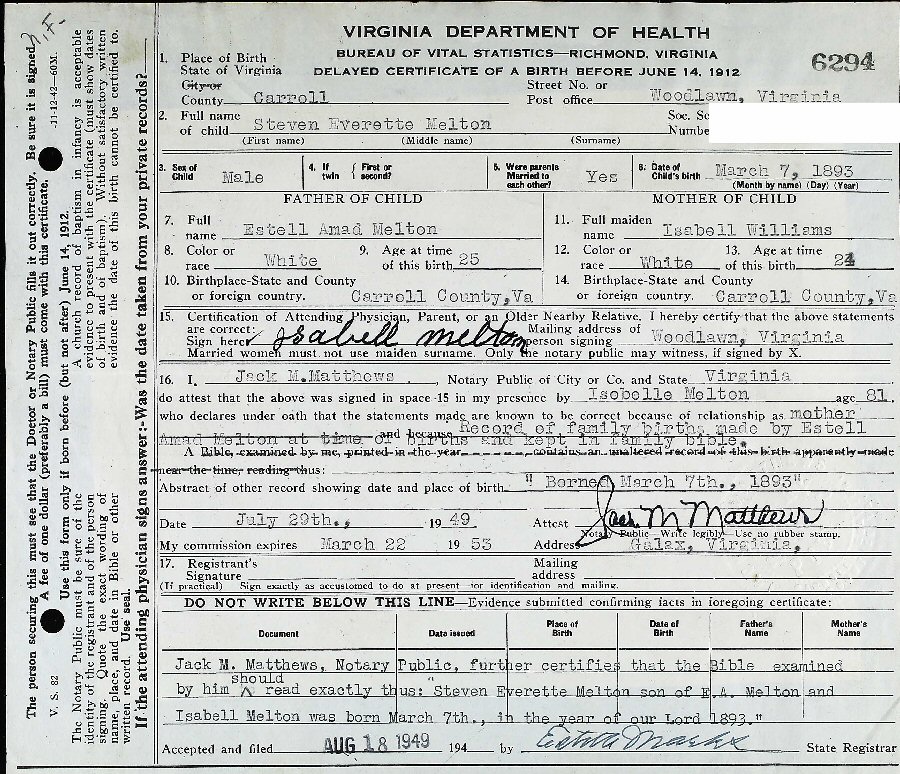 VIRGINIA DEPARTMENT OF HEALTH
BUREAU OF VITAL STATISTICS—RICHMOND, VIRGINIA
DELAYED CERTIFICATE OF A BIRTH BEFORE JUNE 14, 1912
6294
1. Place of Birth
State of Virginia
City or
County Carroll
Street No. or
Post office Woodlawn, Virginia
2. Full name
of child Steven Everette Melton
(First name) (Middle name) (Surname)
Soc. Se
Numbe
3. Sex of
Child Male
4. If
twin
First or
second?
5. Were parents
Married to
each other? Yes
6. Date of
Child's birth March 7, 1893
(Month by name) (Day) (Year)
FATHER OF CHILD
MOTHER OF CHILD
7. Full
name Estell Amad Melton
11. Full maiden
name Isabell Williams
8. Color or
race White
9. Age at time
of this birth 25
12. Color or
race White
13. Age at time
of this birth 24
10. Birthplace-State and County
or foreign country. Carroll County,Va
14. Birthplace-State and County
or foreign country. Carroll County,Va
15. Certification of Attending Physician, Parent, or an Older Nearby Relative. I hereby certify that the above statements
are correct:
Sign here Isabell Melton
Mailing address of
person signing Woodlawn, Virginia
Married women must not use maiden surname. Only the notary public may witness, if signed by X.
16. I, Jack M.Matthews, Notary Public of City or Co. and State Virginia
do attest that the above was signed in space 15 in my presence by Isobelle Melton age 81,
who declares under oath that the statements made are known to be correct because of relationship as mother
and because Record of family births made by Estell
Amad Melton at time of births and kept in family bible.
A Bible, examined by me, printed in the year , contains an unaltered record of this birth apparently made
near the time, reading thus:
Abstract of other record showing date and place of birth " Borned March 7th., 1893"
Date July 29th., 1949
Attest Jack M Matthews
Notary Public—Write legibly—Use no rubber stamp.
My commission expires March 22 1953
Address Galax, Virginia,
17. Registrant's
Signature
Mailing
address
(If practical) Sign exactly as accustomed to do at present for identification and mailing.
DO NOT WRITE BELOW THIS LINE—Evidence submitted confirming facts in foregoing certificate:
Document
Date issued
Place of
Birth
Date of
Birth
Father's
Name
Mother's
Name
Jack M. Matthews, Notary Public, further certifies that the Bible examined
should
by him ^ read exactly thus: "Steven Everette Melton son of E.A. Melton and
Isabell Melton was born March 7th., in the year of our Lord 1893."
Accepted and filed AUG 18 1949 194 by Estelle Marks State Registrar
The person securing this must see that the Doctor or Notary Public fills it out correctly. Be sure it is signed.
A fee of one dollar (preferably a bill) must come with this certificate.
Use this form only if born before (but not after) June 14, 1912.
V. S. 82
-11-12-42—60M.
The Notary Public must be sure of the
identity of the registrant and of the person
signing. Quote the exact wording of
name, place, and date in Bible or other
written record. Use seal.
A church record of baptism in infancy is acceptable
evidence to present with the certificate (must show dates
of birth and of baptism). Without satisfactory written
evidence the date of this birth cannot be certified to.
If the attending physician signs answer:-Was the date taken from your private records?